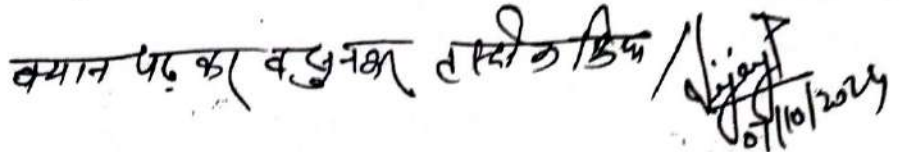 बयान पढ़ कर व सुनकर तस्दीक किया / Vijay
07/10/2024